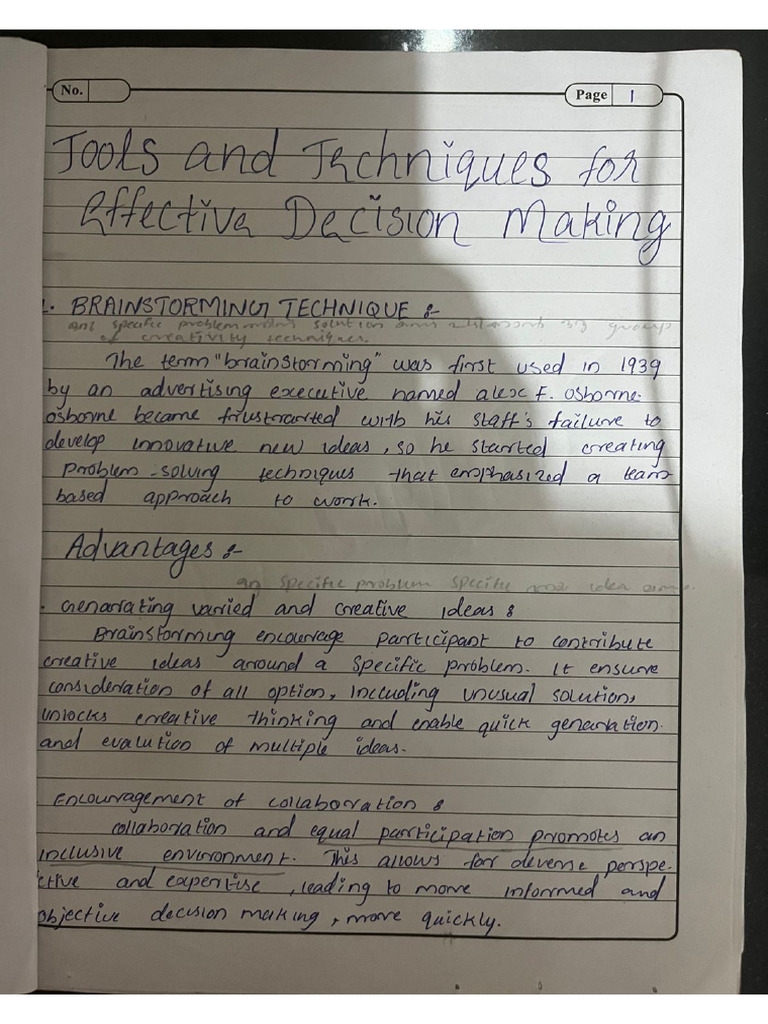 No.
Page 1
Tools and Techniques for
Effective Decision Making
1. BRAINSTORMING TECHNIQUE :-
specific problem solution group
of creativity techniques.
The term "brainstorming" was first used in 1939
by an advertising executive named alex F. osborne.
osborne became frustrarted with his staff's failure to
develop innovative new ideas, so he starrted creating
problem-solving techniques that emphasized a team
based approach to work.
Advantages :-
an specific problem specific idea
. Genarrating varied and creative ideas :
Brainstorming encourage participant to contribute
creative ideas around a specific problem. It ensure
consideration of all option, including unusual solution,
unlocks creative thinking and enable quick genaration.
and evalution of multiple ideas.
Encouragement of collaboration :
collaboration and equal participation promotes an
inclusive environment. This allows for deverse perspe-
ctive and expertise, leading to more informed and
objective decision making, more quickly.